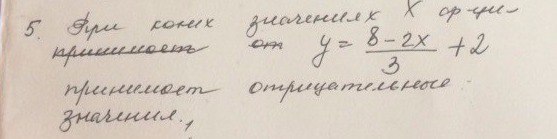 5. При каких значениях x ф-ция
принимает от y = (8-2x)/3 + 2
принимает отрицательные
значения.,